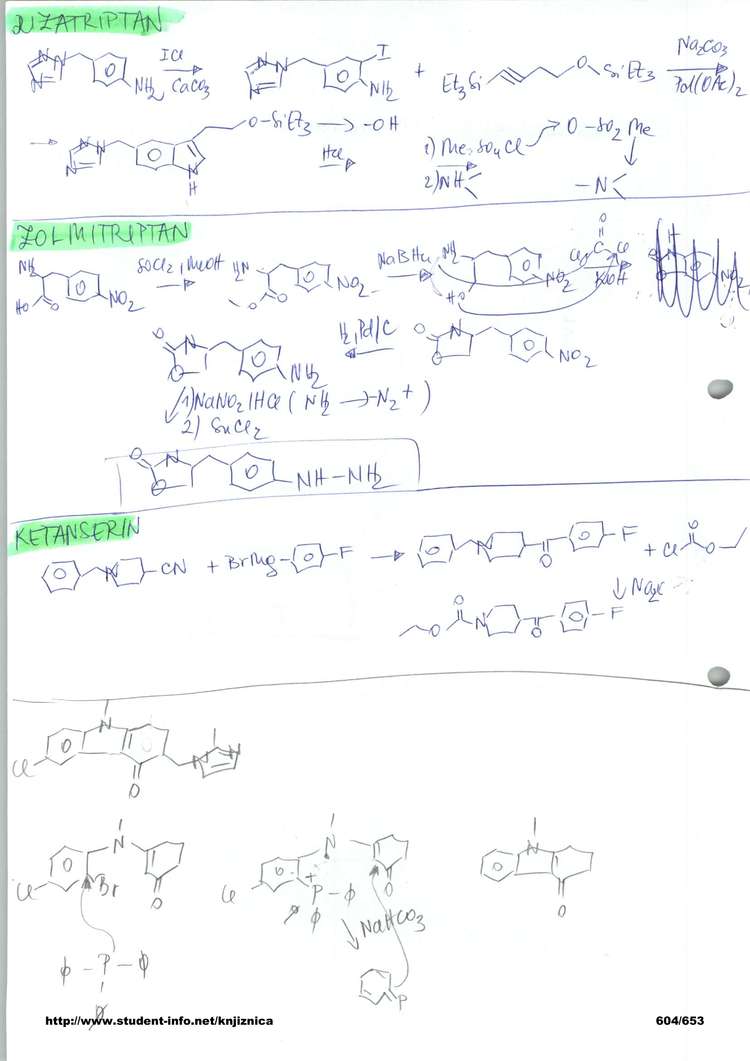 RIZATRIPTAN
ICl
CaCO3
NH2
I
NH2
+
Et3Si
O
SiEt3
Na2CO3
Pd(OAc)2
O-SiEt3 → -OH
HCl
N
H
1) Me-SO4Cl
2) NH
O-SO2Me
-N
ZOLMITRIPTAN
NH2
HO
O
NO2
SOCl2, MeOH
H2N
O
O
NO2
NaBH4
NH2
HO
NO2
O
Cl C Cl
KOH
H
NO2
O
N
O
NH2
H2, Pd/C
O
N
O
NO2
1) NaNO2/HCl (NH2 → -N2+)
2) SnCl2
O
N
O
NH-NH2
KETANSERIN
N
CN
+ BrMg
F
N
O
F
+ Cl
O
O
NaOH
O
O
N
O
F
N
Cl
O
N
N
N
Cl
Br
O
ϕ-P-ϕ
ϕ
N
Cl
+
P-ϕ
ϕ
ϕ
O
NaHCO3
P
N
O
http://www.student-info.net/knjiznica
604/653